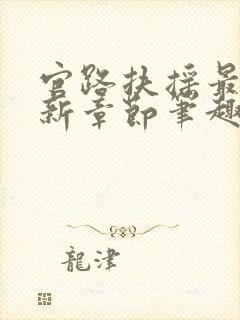 官路扶摇最
新章节笔趣
龍津